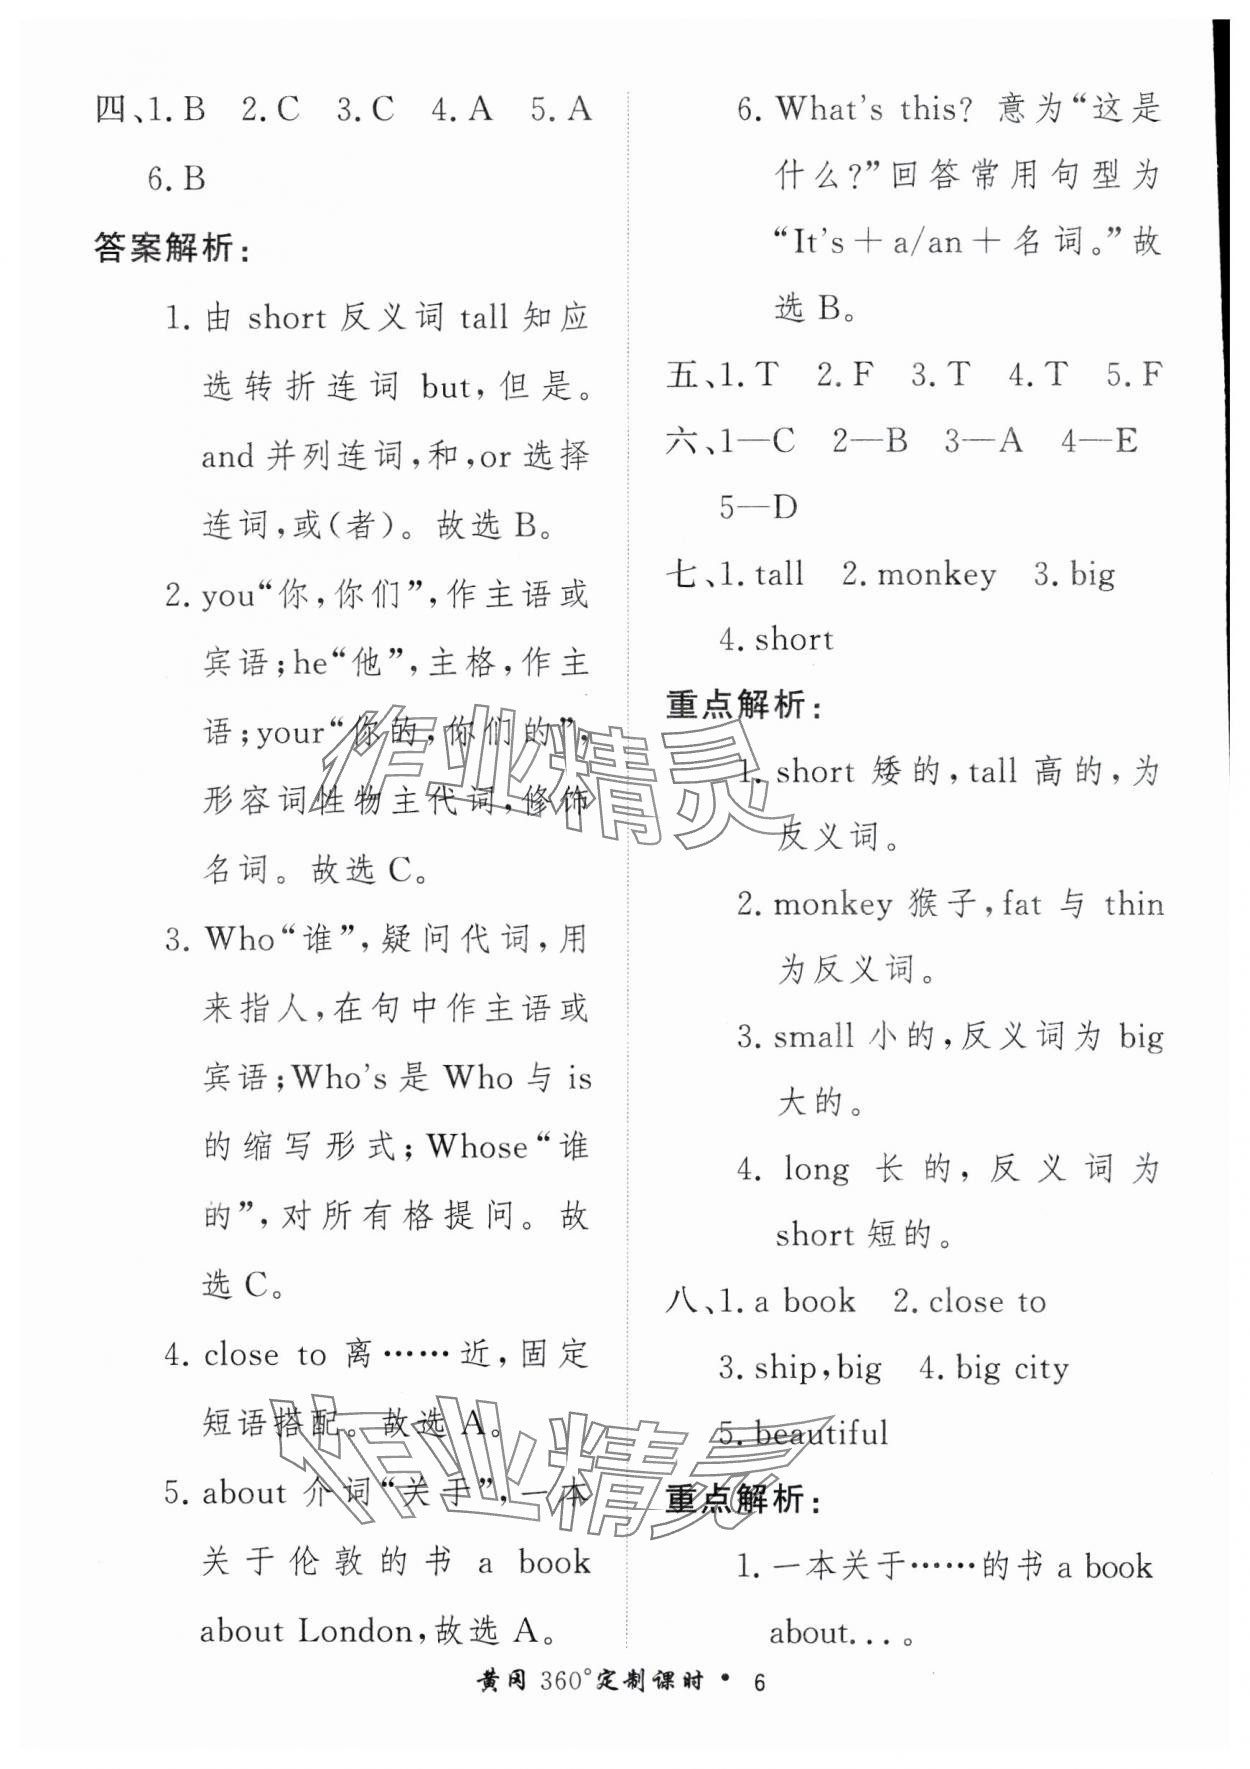 四、1. B 2. C 3. C 4. A 5. A
6. B
答案解析:
1. 由 short 反义词 tall 知应
选转折连词 but,但是。
and 并列连词,和,or 选择
连词,或(者)。故选 B。
2. you“你,你们”,作主语或
宾语;he“他”,主格,作主
语;your“你的,你们的”,
形容词性物主代词,修饰
名词。故选 C。
3. Who“谁”,疑问代词,用
来指人,在句中作主语或
宾语;Who's 是 Who 与 is
的缩写形式;Whose“谁
的”,对所有格提问。故
选 C。
4. close to 离……近,固定
短语搭配。故选 A。
5. about 介词“关于”,一本
关于伦敦的书 a book
about London,故选 A。
6. What's this? 意为“这是
什么?”回答常用句型为
“It's + a/an + 名词。”故
选 B。
五、1. T 2. F 3. T 4. T 5. F
六、1—C 2—B 3—A 4—E
5—D
七、1. tall 2. monkey 3. big
4. short
重点解析:
1. short 矮的,tall 高的,为
反义词。
2. monkey 猴子,fat 与 thin
为反义词。
3. small 小的,反义词为 big
大的。
4. long 长的,反义词为
short 短的。
八、1. a book 2. close to
3. ship,big 4. big city
5. beautiful
重点解析:
1. 一本关于……的书 a book
about...。
黄冈 360°定制课时 • 6
作业精灵
作业精灵